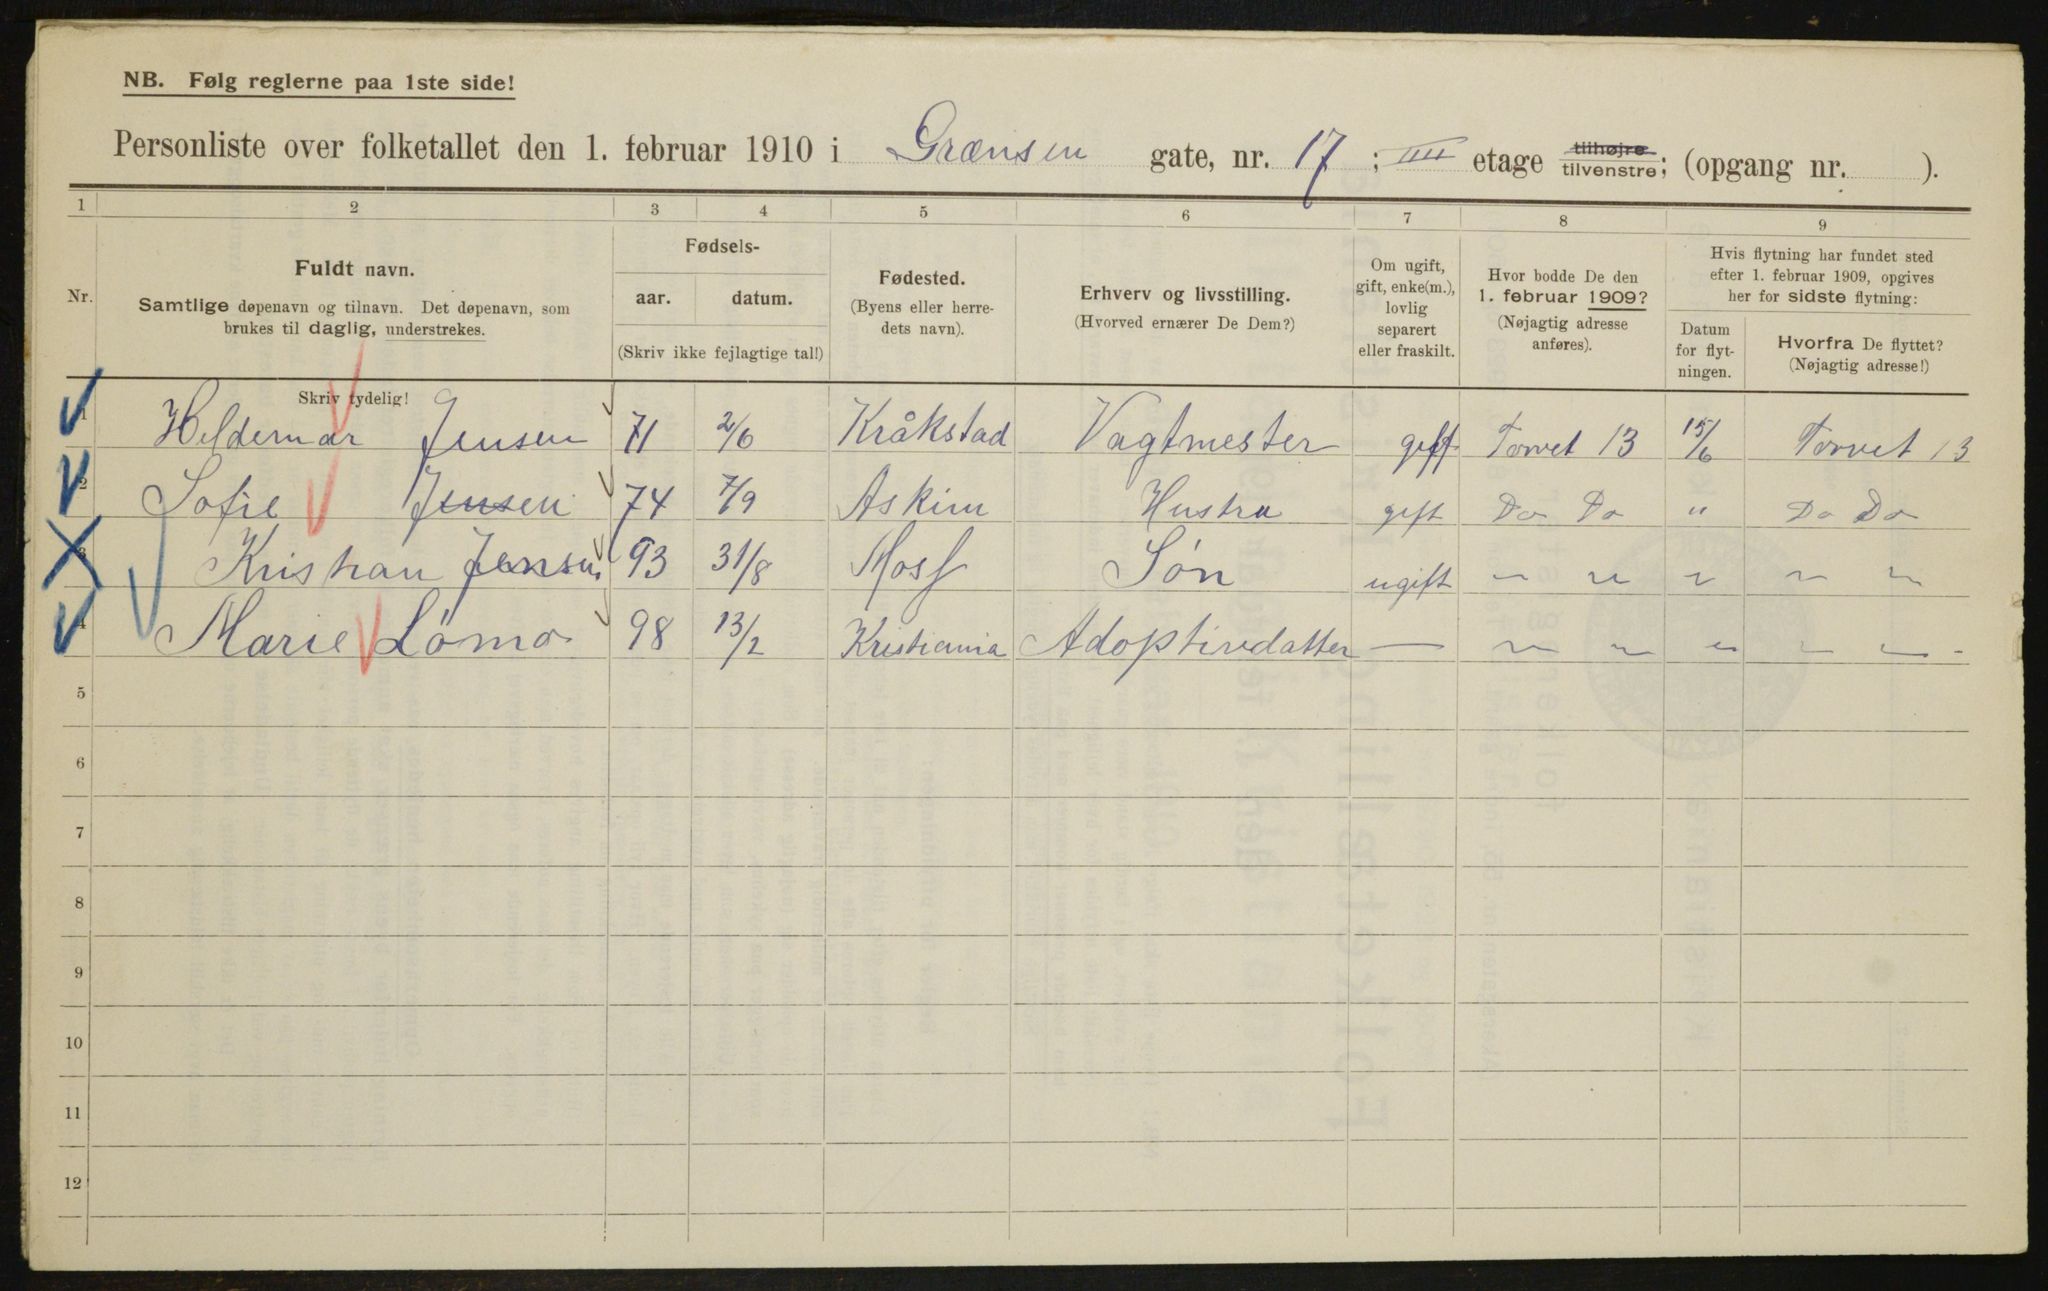 NB. Følg reglerne paa 1ste side!
Personliste over folketallet den 1. februar 1910 i Grænsen gate, nr. 17; IIII etage tilhøjre/tilvenstre; (opgang nr. ).
1 2 3 4 5 6 7 8 9
Nr.
Fuldt navn.
Samtlige døpenavn og tilnavn. Det døpenavn, som
brukes til daglig, understrekes.
Skriv tydelig!
Fødsels-
aar. datum.
(Skriv ikke fejlagtige tal!)
Fødested.
(Byens eller herre-
dets navn).
Erhverv og livsstilling.
(Hvorved ernærer De Dem?)
Om ugift,
gift, enke(m.),
lovlig
separert
eller fraskilt.
Hvor bodde De den
1. februar 1909?
(Nøjagtig adresse
anføres).
Hvis flytning har fundet sted
efter 1. februar 1909, opgives
her for sidste flytning:
Datum
for flyt-
ningen.
Hvorfra De flyttet?
(Nøjagtig adresse!)
1 Heldemar Jensen 71 2/6 Kråkstad Vagtmester gift Torvet 13 15/6 Torvet 13
2 Sofie Jensen 74 7/9 Askim Hustru gift Do Do " Do Do
3 Kristian Jensen 93 31/8 Moss Søn ugift " " " " "
4 Marie Lömo 98 13/2 Kristiania Adoptivdatter — " " " " "
5
6
7
8
9
10
11
12